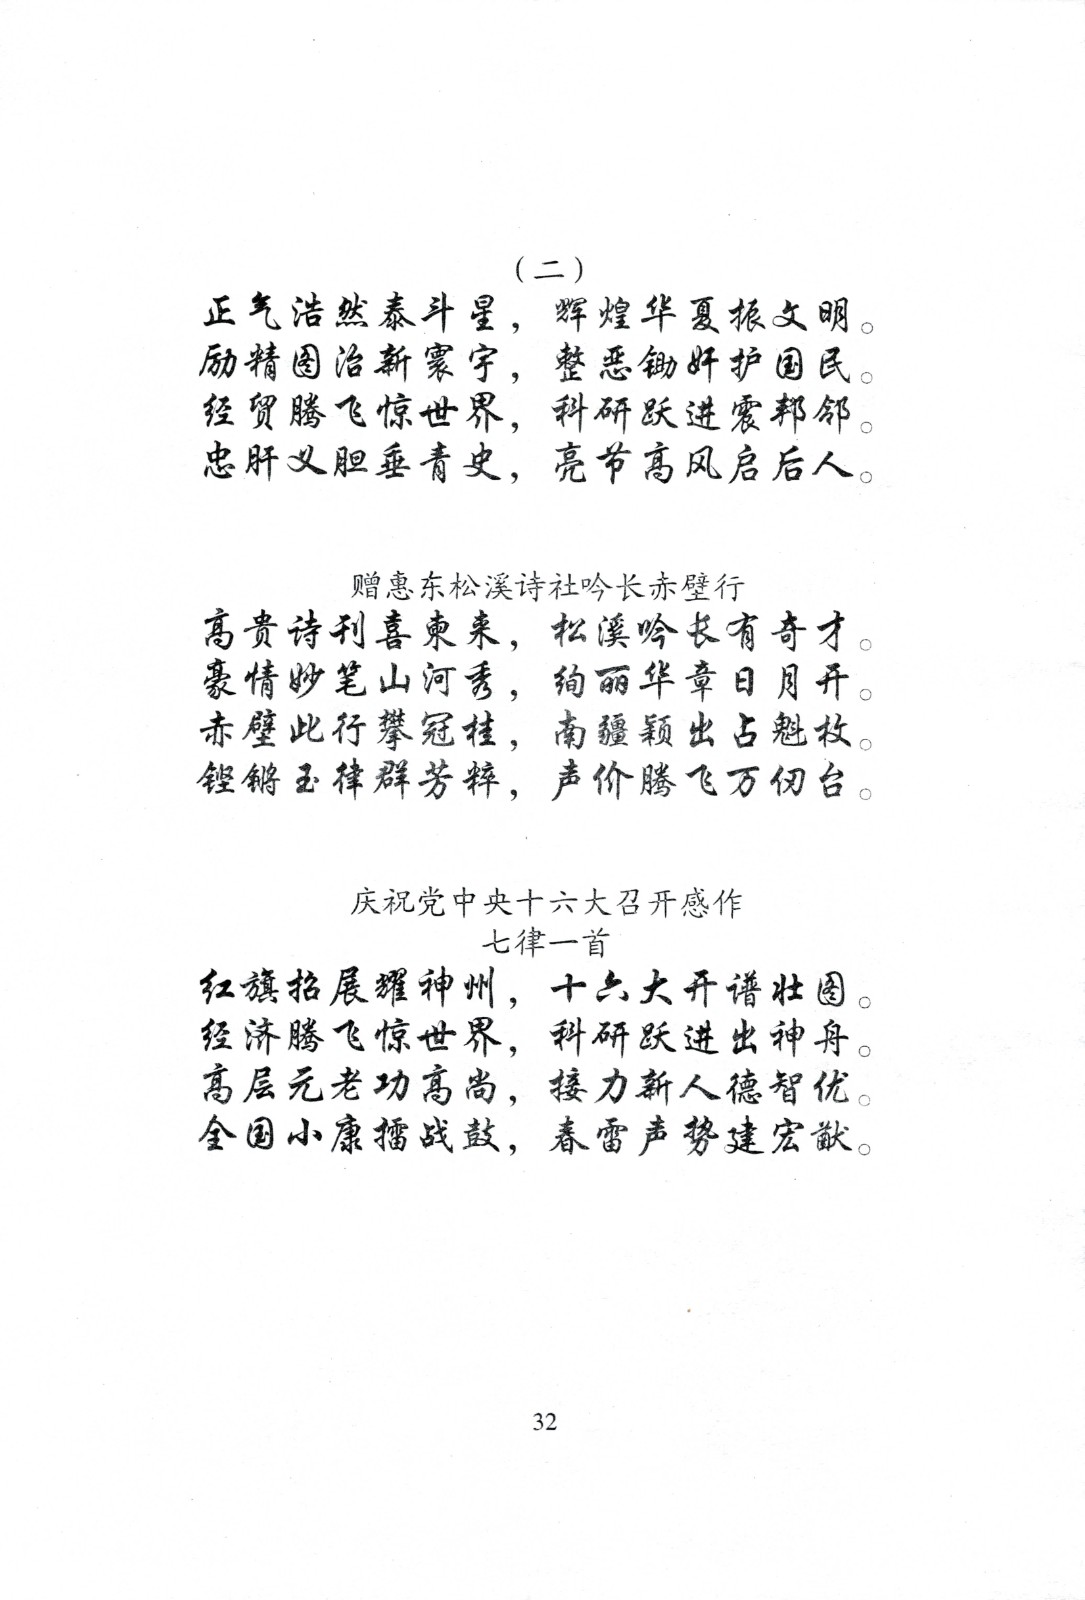 （二）
正气浩然泰斗星，辉煌华夏振文明。
励精图治新寰宇，整恶锄奸护国民。
经贸腾飞惊世界，科研跃进震邦邻。
忠肝义胆垂青史，亮节高风启后人。
赠惠东松溪诗社吟长赤壁行
高贵诗刊喜柬来，松溪吟长有奇才。
豪情妙笔山河秀，绚丽华章日月开。
赤壁此行攀冠桂，南疆颖出占魁枚。
铿锵玉律群芳粹，声价腾飞万仞台。
庆祝党中央十六大召开感作
七律一首
红旗招展耀神州，十六大开谱壮图。
经济腾飞惊世界，科研跃进出神舟。
高层元老功高尚，接力新人德智优。
全国小康擂战鼓，春雷声势建宏猷。
32